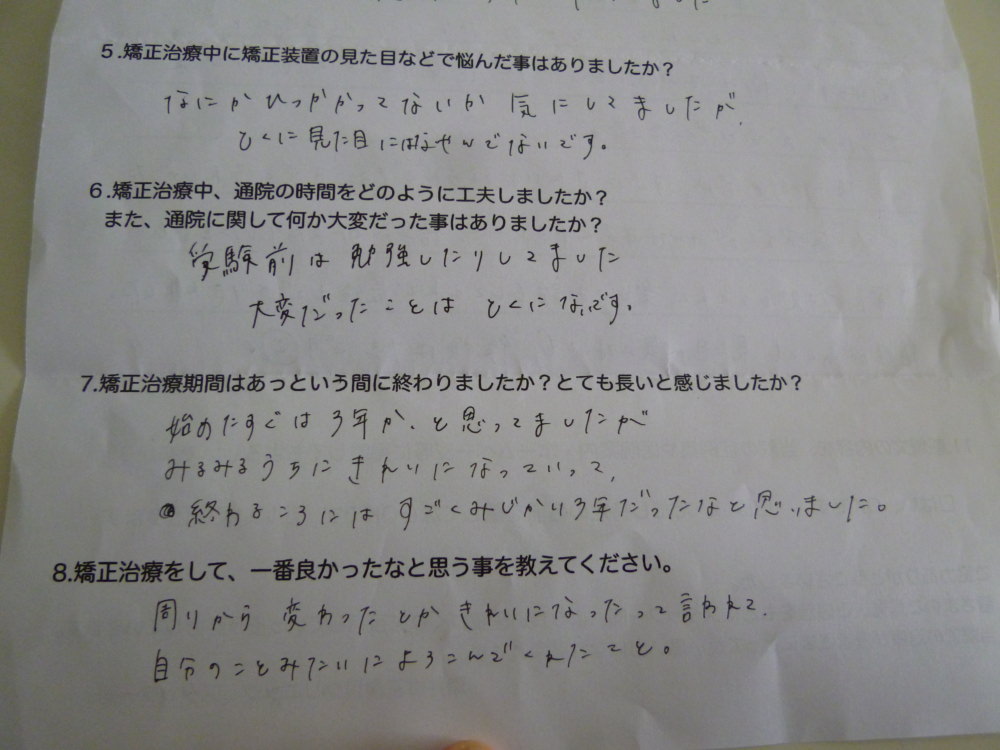 5.矯正治療中に矯正装置の見た目などで悩んだ事はありましたか?
なにかひっかかってないか 気にしてましたが、
とくに見た目にはなやんでないです。
6.矯正治療中、通院の時間をどのように工夫しましたか?
また、通院に関して何か大変だった事はありましたか?
受験前は勉強したりしてました
大変だったことは とくにないです。
7.矯正治療期間はあっという間に終わりましたか?とても長いと感じましたか?
始めたすぐは 3年か、と思ってましたが
みるみるうちに きれいになっていって、
終わるころには すごくみじかい3年だったなと思いました。
8.矯正治療をして、一番良かったなと思う事を教えてください。
周りから 変わったとか きれいになったって 言われて、
自分のことみたいに よろこんでくれたこと。